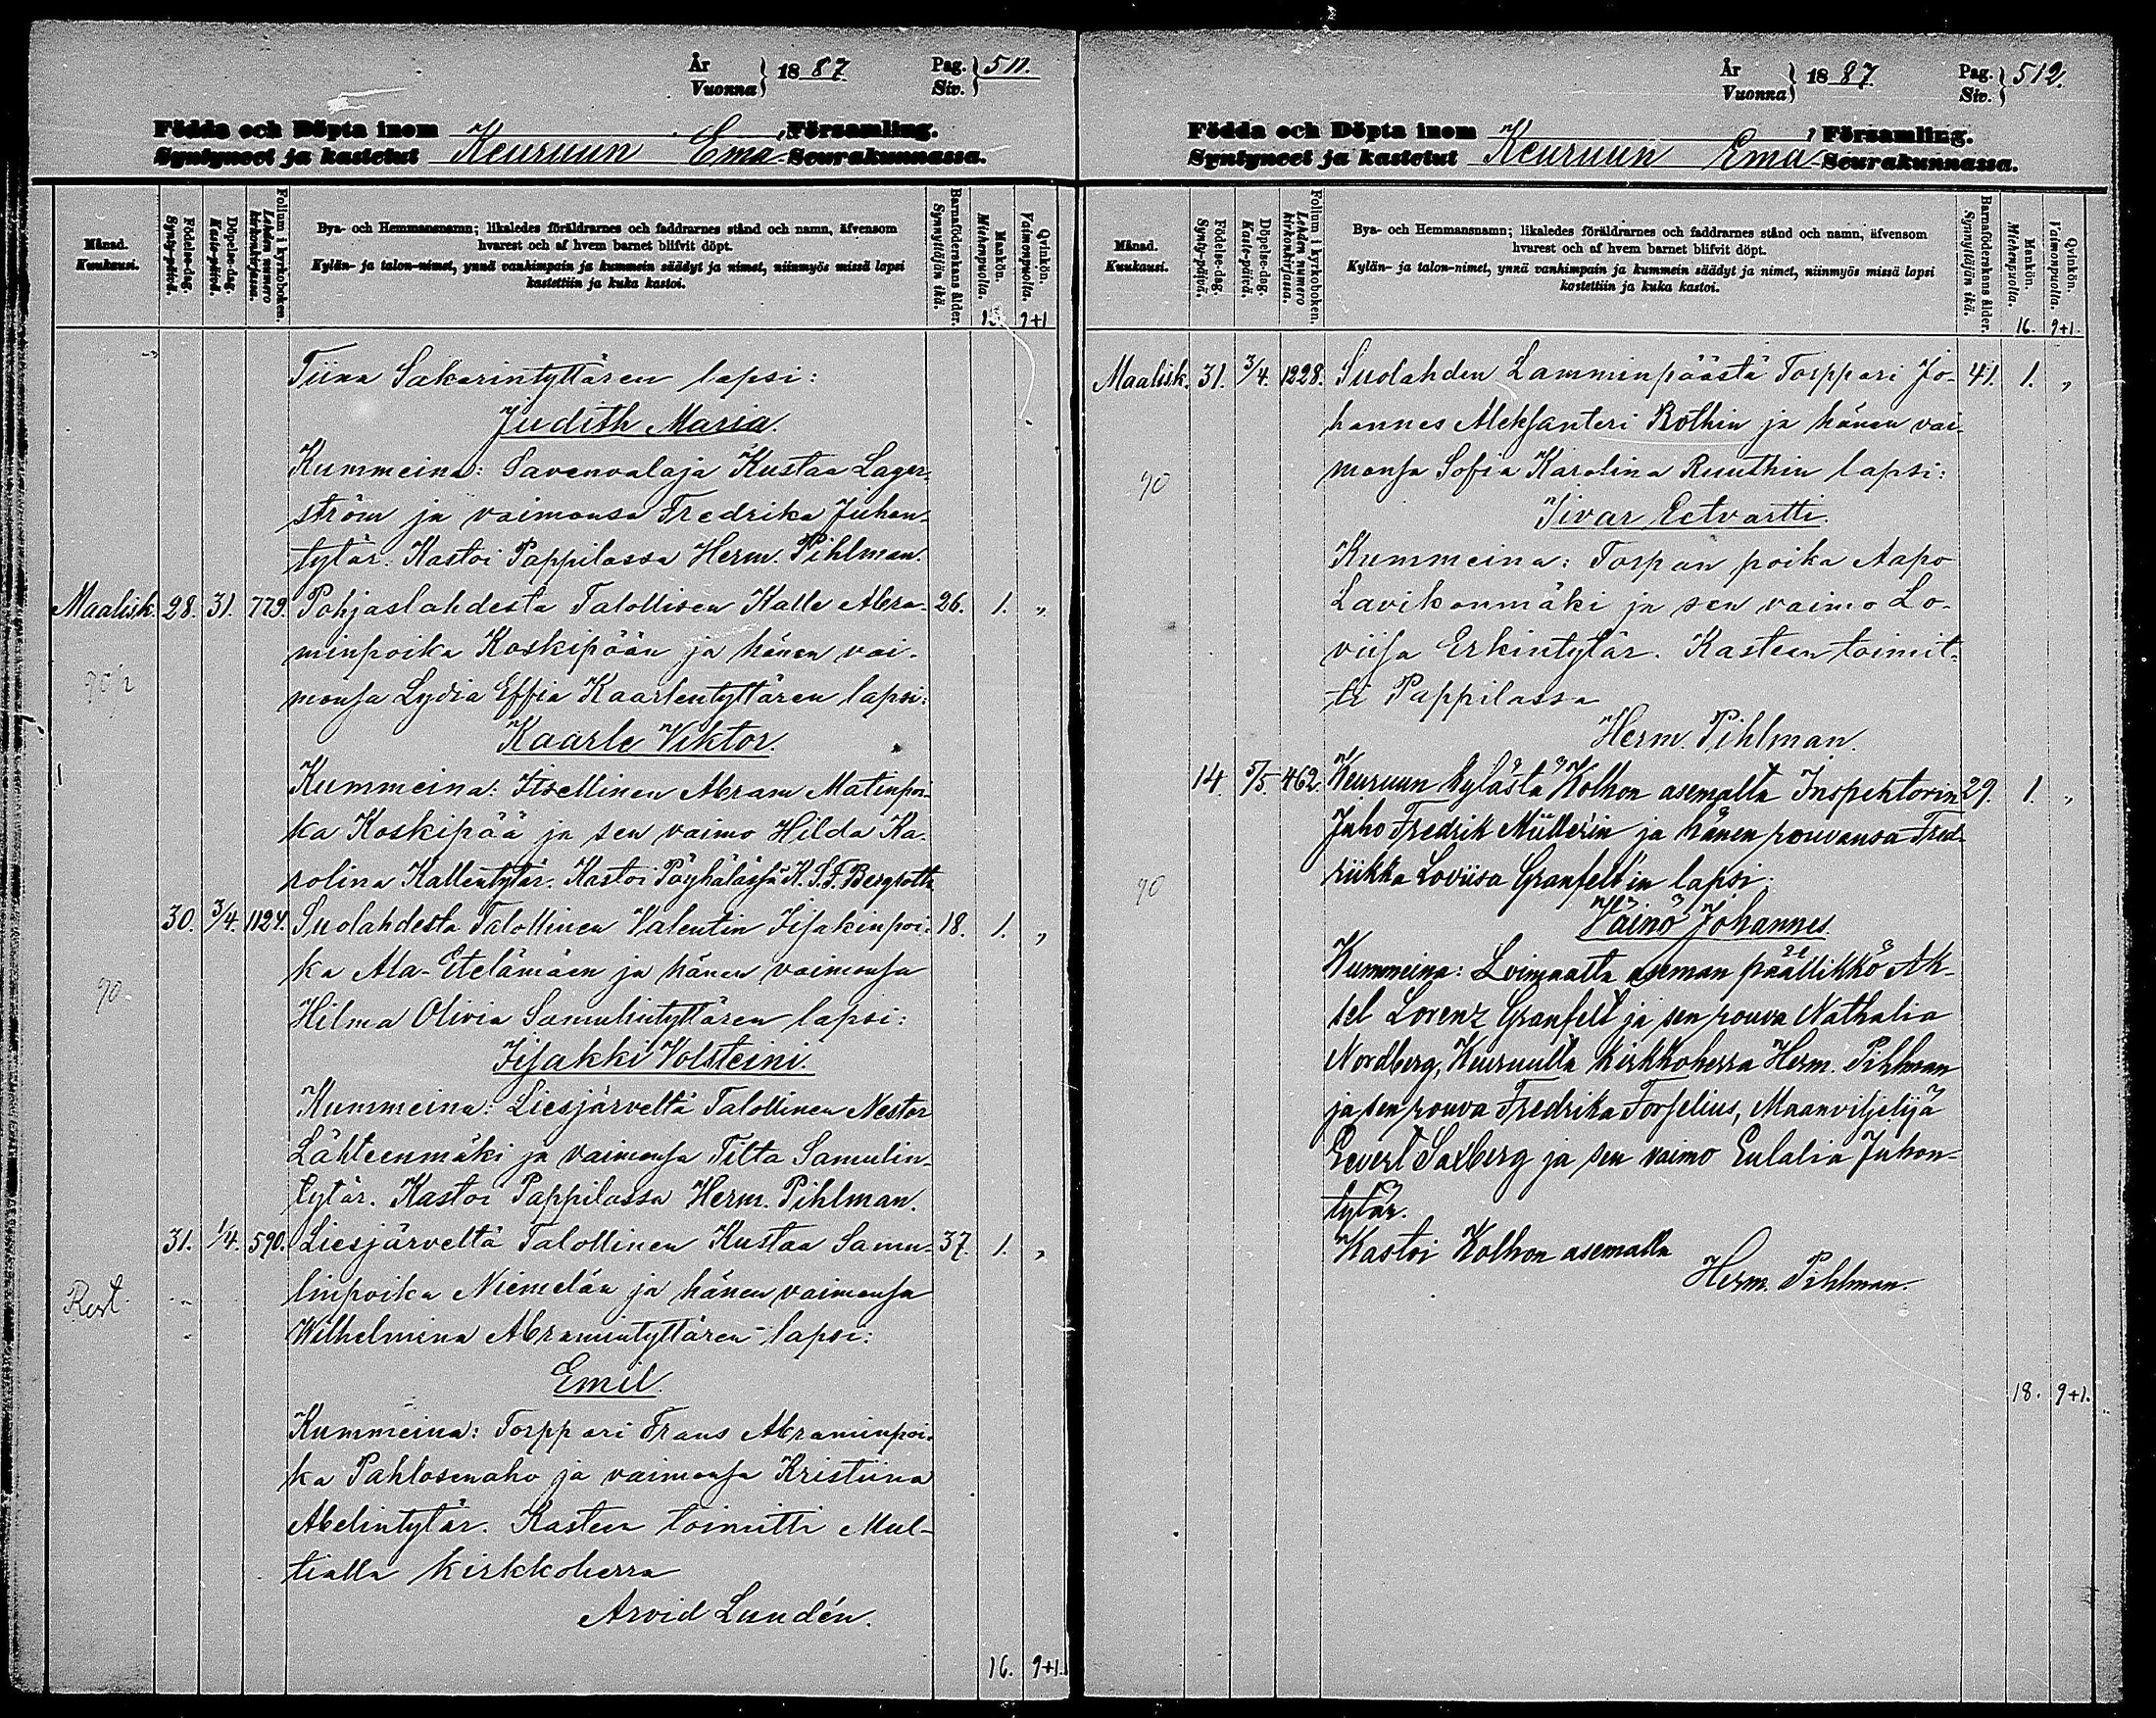 År
Vuonna } 1887 Pag.
Siv. } 511.
Födda och Döpta inom Församling.
Syntyneet ja kastetut Keuruun Emä Seurakunnassa.
Månad.
Kuukausi.
Födelse-dag.
Synty-päivä.
Döpelse-dag.
Kaste-päivä.
Folium i kyrkoboken.
Lehden numero kirkonkirjassa.
Bya- och Hemmansnamn; likaledes föräldrarnes och faddrarnes stånd och namn, äfvensom
hvarest och af hvem barnet blifvit döpt.
Kylän- ja talon-nimet, ynnä vanhimpain ja kummein säädyt ja nimet, niinmyös missä lapsi
kastettiin ja kuka kastoi.
Barnaföderskans ålder.
Synnyttäjän ikä.
Mankön.
Miehenpuolia.
Qvinkön.
Vaimonpuolia.
9+1
Tiina Sakarintyttären lapsi:
Judith Maria.
Kummeina: Savenvalaja Kustaa Lager-
ström ja vaimonsa Fredrika Juhon-
tytär. Kastoi Pappilassa Herm. Pihlman.
Maalisk. 28. 31. 779. Pohjaslahdesta Talollisen Kalle Abra- 26. 1. „
minpoika Koskipään ja hänen vai-
monsa Lydia Effia Kaarlentyttären lapsi:
Kaarle Viktor.
Kummeina: Itsellinen Abram Matinpoi-
ka Koskipää ja sen vaimo Hilda Ka-
rolina Kallentytär. Kastoi Pöyhälässä K. S. F. Bergroth
30. 3/4. 1124. Suolahdesta Talollinen Valentin Iisakinpoi- 18. 1. „
ka Ala-Etelämäen ja hänen vaimonsa
90.
Hilma Olivia Samulintyttären lapsi:
Iisakki Volsteini.
Kummeina: Liesjärveltä Talollinen Nestor
Lähteenmäki ja vaimonsa Tilta Samulin-
tytär. Kastoi Pappilassa Herm. Pihlman.
31. 1/4. 590. Liesjärveltä Talollinen Kustaa Samu- 37. 1. „
linpoika Niemelän ja hänen vaimonsa
Wilhelmina Abramintyttären lapsi:
Emil.
Kummeina: Torppari Frans Abraminpoi-
ka Pahlosenaho ja vaimonsa Kristiina
Abelintytär. Kasteen toimitti Mul-
tialla kirkkoherra
Arvid Lundén.
16. 9+1.
År
Vuonna } 1887. Pag.
Siv. } 512.
Födda och Döpta inom Församling.
Syntyneet ja kastetut Keuruun Emä Seurakunnassa.
Månad.
Kuukausi.
Födelse-dag.
Synty-päivä.
Döpelse-dag.
Kaste-päivä.
Folium i kyrkoboken.
Lehden numero kirkonkirjassa.
Bya- och Hemmansnamn; likaledes föräldrarnes och faddrarnes stånd och namn, äfvensom
hvarest och af hvem barnet blifvit döpt.
Kylän- ja talon-nimet, ynnä vanhimpain ja kummein säädyt ja nimet, niinmyös missä lapsi
kastettiin ja kuka kastoi.
Barnaföderskans ålder.
Synnyttäjän ikä.
Mankön.
Miehenpuolia.
Qvinkön.
Vaimonpuolia.
16. 9+1.
Maalisk. 31. 3/4. 1228. Suolahden Lamminpäästä Torppari Jo- 41. 1. „
hannes Aleksanteri Rothin ja hänen vai-
90
monsa Sofia Karolina Ruuthin lapsi:
Iivar Eetvartti.
Kummeina: Torpan poika Aapo
Lavikonmäki ja sen vaimo Lo-
viisa Erkintytär. Kasteen toimit-
ti Pappilassa
Herm. Pihlman.
14. 5/5. 462. Keuruun kylästä Kolhon asemalta Inspehtorin 29. 1. „
Juho Fredrik Müller'in ja hänen rouvansa Fred-
riikka Loviisa Granfelt'in lapsi:
90
Väinö Johannes.
Kummeina: Loimaalta aseman päällikkö Ak-
sel Lorenz Granfelt ja sen rouva Nathalia
Nordberg, Keuruulta kirkkoherra Herm. Pihlman
ja sen rouva Fredrika Forselius, Maanviljelijä
Eevert Saxberg ja sen vaimo Eulalia Juhon-
tytär.
Kastoi Kolhon asemalla
Herm. Pihlman.
18. 9+1.